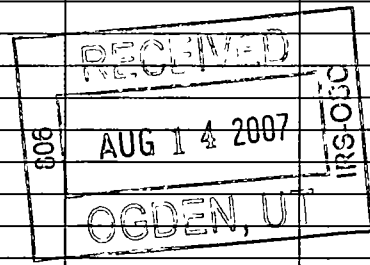 RECEIVED
AUG 14 2007
IRS-OSC
OGDEN, UT